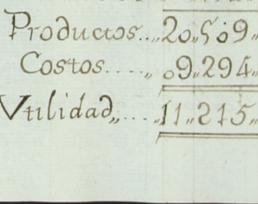 Productos...20,,509,,
Costos.....,,09,,294,,
Vtilidad,,....11,,215,,